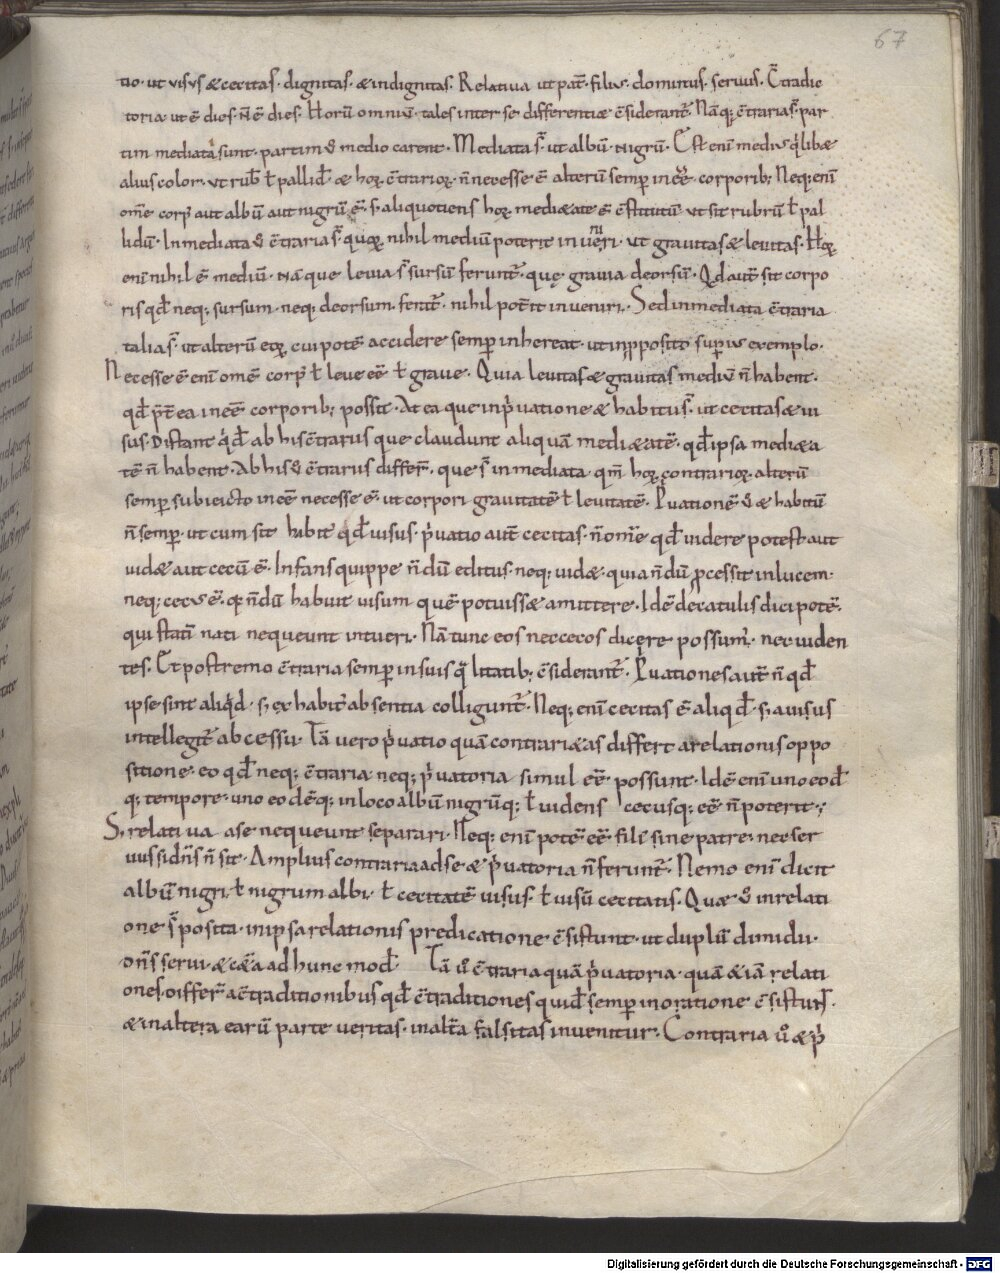 67
tio· ut visvs & cecitas· dignitas· & indignitas. Relativa ut pat̄· filius· dominus· servus. C̄tradic
toria ut ē dies· N̄ ē dies· Horū omniū· tales inter se differentiae c̄siderant᷑. Nāq; c̄traria s̄· par
tim mediata sunt· partim v̄ medio carent· Mediata s̄· ut albū· nigrū· Est eni mediv q̓lib&
alius color· vt rub̄ ł pallid̄· & hoꝝ c̄trarioꝝ· n̄ necesse ē alterū semp̱ in eē· corporib; Neq; enī
om̄e corp᷒ aut albū aut nigrū ē· s; aliquotiens hoꝝ medi&ate ē c̄stitutū vt sit rubrū ł pal
lidū· Inmediata v̄ c̄traria s̄· quoꝝ nihil mediū poterit inveniri· vt gravitas & levitas· Hoꝝ
enī nihil ē mediū· nāque levia s̄ sursū ferunt᷑· quę gravia deorsū· Qd aut̄ sit corpo
ris qd̄ neq; sursum· neq; deorsum· ferat᷑· nihil pot̄it inveniri· Sed inmediata c̄traria
talia s̄· ut alterū eoꝝ cui potē accidere semp̱ inhereat· ut in p̱posito sup̱ius exemplo·
Necesse ē enī omē corp᷒ ł leve eē ł grave· Quia levitas & gravitas mediv n̄ habent·
qd̄ p̄t ea ineē corporib; possit· At ea que in p̓vatione & habitu s̄· ut cecitas & vi
sus· Distant q̓d̄ ab his c̄trariis que claudunt aliquā medi&atē· qd̄ ipsa medi&a
tē n̄ habent· Ab his v̄ c̄trariis differ̄· que s̄ inmediata· qm̄ hoꝝ contrarioꝝ· alterū
semp̱ subiecto ineē necesse ē· ut corpori gravitatē ł levitatē· Pvationē v̄ & habitū
n̄ semp̱· ut cum sit habit᷒ qd̄ visus· p̓vatio aut̄ cecitas· n̄ om̄e qd̄ videre potest aut
vid& aut cecū ē· Infans quippe n̄dū editus· neq; vid& quia n̄dū p̱cessit in lucem·
neq; cecvs ē· qꝛ n̄dū habuit visum quē potuiss& amittere· Idē de catulis dici potē·
qui statī nati nequeunt intueri· Nā tunc eos nec cecos dicere possum᷒· nec viden
tes· Et postremo c̄traria semp̱ in suis q̓litatib; c̄siderant᷑· Pvationes aut̄ n̄ qd̄
ipse sint aliq̓d· s; ex habit᷒ absentia colligunt᷑· Neq; enī cecitas ē aliqd̄· s; a visus
intellegit᷑ abcessu· Tā vero p̓vatio quā contrari&as differt a relationis oppo
sitione· eo qd̄ neq; c̄traria neq; p̓vatoria simul eē possunt· Idē enī uno eod̄
q; tempore· uno eodēq; in loco albū nigrūq; ł videns cecusq; eē n̄ poterit·;
S; relativa a se nequeunt separari· Neq; enī potē eē fili᷒ sine patre· nec ser
vus si dn̄s n̄ sit· Amplius contraria ad se & p̓vatoria n̄ ferunt᷑· Nemo enī dicit
albū nigri· ł nigrum albi· ł cecitatē visus· ł visū cecitatis· Quae v̄ in relati
one s̄ posita· in ipsa relationis predicatione c̄sistunt· ut duplū dimidii·
dn̄s servi· & c&̄a ad hunc mod̄ Tā v̄ c̄traria quā p̓vatoria· quā &iā relati
ones· differ̄ a c̄traditionibus qd̄ c̄traditiones quid̄ semp̱ in oratione c̄sistunt·
& in altera earū parte veritas· in alt̄a falsitas invenitur· Contraria v̄ & p̓
Digitalisierung gefördert durch die Deutsche Forschungsgemeinschaft - DFG